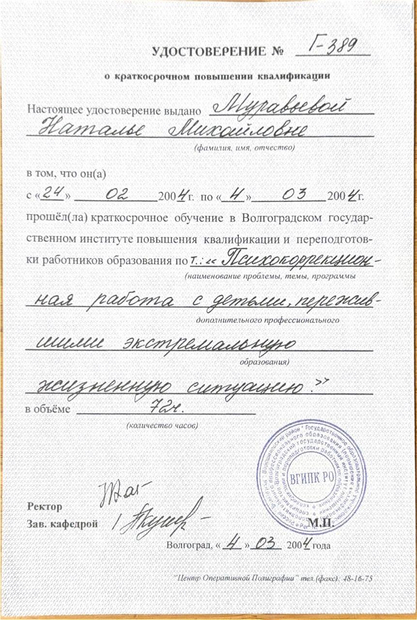 УДОСТОВЕРЕНИЕ № Г-389
о краткосрочном повышении квалификации
Настоящее удостоверение выдано Муравьевой
Наталье Михайловне
(фамилия, имя, отчество)
в том, что он(а)
с «24» 02 2004г. по «4» 03 2004г.
прошёл(ла) краткосрочное обучение в Волгоградском государ-
ственном институте повышения квалификации и переподготов-
ки работников образования по т.: «Психокоррекцион-
(наименование проблемы, темы, программы
ная работа с детьми, пережив-
дополнительного профессионального
шими экстремальную
образования)
жизненную ситуацию.»
в объёме 72ч.
(количество часов)
ВГИПК РО
Ректор
Зав. кафедрой
М.П.
Волгоград, «4» 03 2004 года
"Центр Оперативной Полиграфии" тел.(факс): 48-16-75